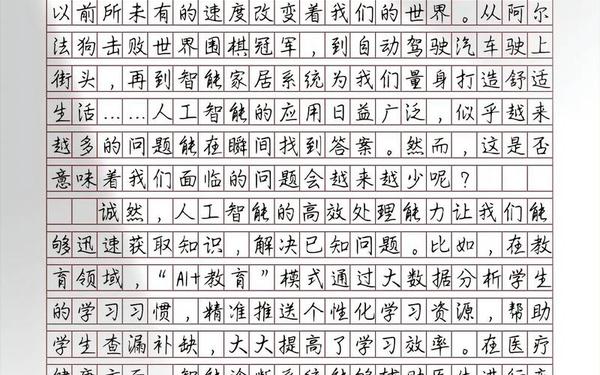 以前所未有的速度改变着我们的世界。从阿尔
法狗击败世界围棋冠军，到自动驾驶汽车驶上
街头，再到智能家居系统为我们量身打造舒适
生活……人工智能的应用日益广泛，似乎越来
越多的问题能在瞬间找到答案。然而，这是否
意味着我们面临的问题会越来越少呢？
诚然，人工智能的高效处理能力让我们能
够迅速获取知识，解决已知问题。比如，在教
育领域，“AI+教育”模式通过大数据分析学生
的学习习惯，精准推送个性化学习资源，帮助
学生查漏补缺，大大提高了学习效率。在医疗